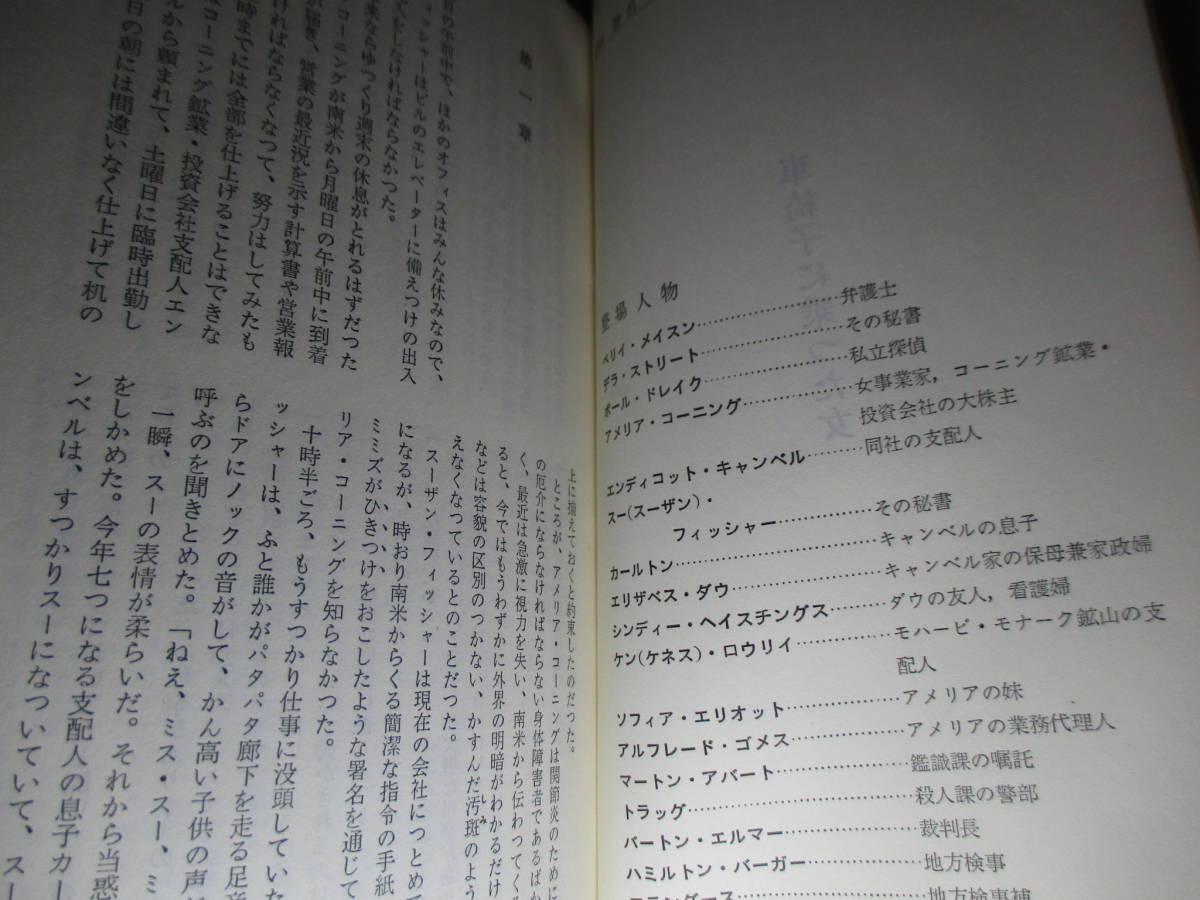 車椅子に乗った女
登場人物
ペリイ・メイスン……………弁護士
デラ・ストリート……………その秘書
ポール・ドレイク……………私立探偵
アメリア・コーニング…………女事業家，コーニング鉱業・
投資会社の大株主
エンディコット・キャンベル……同社の支配人
スー(スーザン)・
フィッシャー…………その秘書
カールトン………………………キャンベルの息子
エリザベス・ダウ………………キャンベル家の保母兼家政婦
シンディー・ヘイスチングス……ダウの友人，看護婦
ケン(ケネス)・ロウリイ…………モハービ・モナーク鉱山の支
配人
ソフィア・エリオット……………アメリアの妹
アルフレード・ゴメス……………アメリアの業務代理人
マートン・アバート………………鑑識課の嘱託
トラッグ……………………………殺人課の警部
バートン・エルマー………………裁判長
ハミルトン・バーガー……………地方検事
地方検事補
第一章
日の午前中で、ほかのオフィスはみんな休みなので、
ィッシャーはビルのエレベーターに備えつけの出入
入をしなければならなかつた。
来ならゆつくり週末の休息がとれるはずだつた
コーニングが南米から月曜日の午前中に到着
が届き、営業の最近況を示す計算書や営業報
ければならなくなつて、努力はしてみたも
時までには全部を仕上げることはできな
コーニング鉱業・投資会社支配人エン
ルから頼まれて、土曜日に臨時出勤し
日の朝には間違いなく仕上げて机の
上に揃えておくと約束したのだつた。
ところが、アメリア・コーニングは関節炎のために
の厄介にならなければならない身体障害者であるばか
く、最近は急激に視力を失い、南米から伝わつてくる
ると、今ではもうわずかに外界の明暗がわかるだけ
などは容貌の区別のつかない、かすんだ汚斑のよう
えなくなつているとのことだつた。
スーザン・フィッシャーは現在の会社につとめて
になるが、時おり南米からくる簡潔な指令の手紙
ミミズがひきつけをおこしたような署名を通じて
リア・コーニングを知らなかつた。
十時半ごろ、もうすつかり仕事に没頭していた
ッシャーは、ふと誰かがパタパタ廊下を走る足音
らドアにノックの音がして、かん高い子供の声
呼ぶのを聞きとめた。「ねえ、ミス・スー、ミ
一瞬、スーの表情が柔らいだ。それから当惑
をしかめた。今年七つになる支配人の息子カー
ンベルは、すつかりスーになついていて、スー